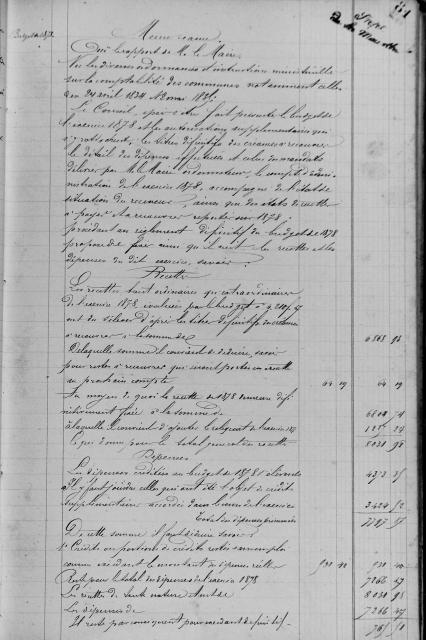 81
Budget de 1878
Même séance.
Ouï le rapport de M. le Maire
Vu les diverses ordonnances et instructions ministérielles
sur la comptabilité des communes notamment celles
Le Conseil, après s'être fait présenter le budget de
l'exercice 1878 et les autorisations supplémentaires qui
s'y rattachent, les titres définitifs des créances à recouvrer
le détail des dépenses effectuées et celui des mandats
délivrés par M. le Maire ordonnateur, le compte d'admi-
nistration de l'exercice 1878, accompagné de l'état de
situation du receveur, ainsi que des états de recettes
à payer et à recouvrer reportés sur 1879 ;
procédant au règlement définitif du budget de 1878
propose de fixer ainsi qu'il suit les recettes et les
dépenses du dit exercice, savoir :
Recettes
Les recettes tant ordinaires qu'extraordinaires
de l'exercice 1878, évaluées par le budget à
ont dû s'élever d'après les titres définitifs des créances
à recouvrer à la somme de
De laquelle somme il convient de déduire, savoir
pour restes à recouvrer qui seront portés en recette
au prochain compte 64 19 64 19
Au moyen de quoi la recette de 1878 demeure défi-
nitivement fixée à la somme de
à laquelle il convient d'ajouter l'excédent de l'exercice 187
Ce qui donne pour le total général des recettes 8031 98
Dépenses
Les dépenses créditées au budget de 1878 s'élèvent à
Il y faut joindre celles qui ont été l'objet de crédits
supplémentaires accordés dans le cours de l'exercice 3424
Total des dépenses présumées
De cette somme il faut déduire savoir
1° Crédits ou portions de crédits restés sans emploi
comme excédant le montant des dépenses réelles
Reste pour le total des dépenses de l'exercice 1878 7266 47
Les recettes de toute nature étant de 8031 98
Les dépenses de 7266 47
Il reste par conséquent pour excédant définitif 765 51